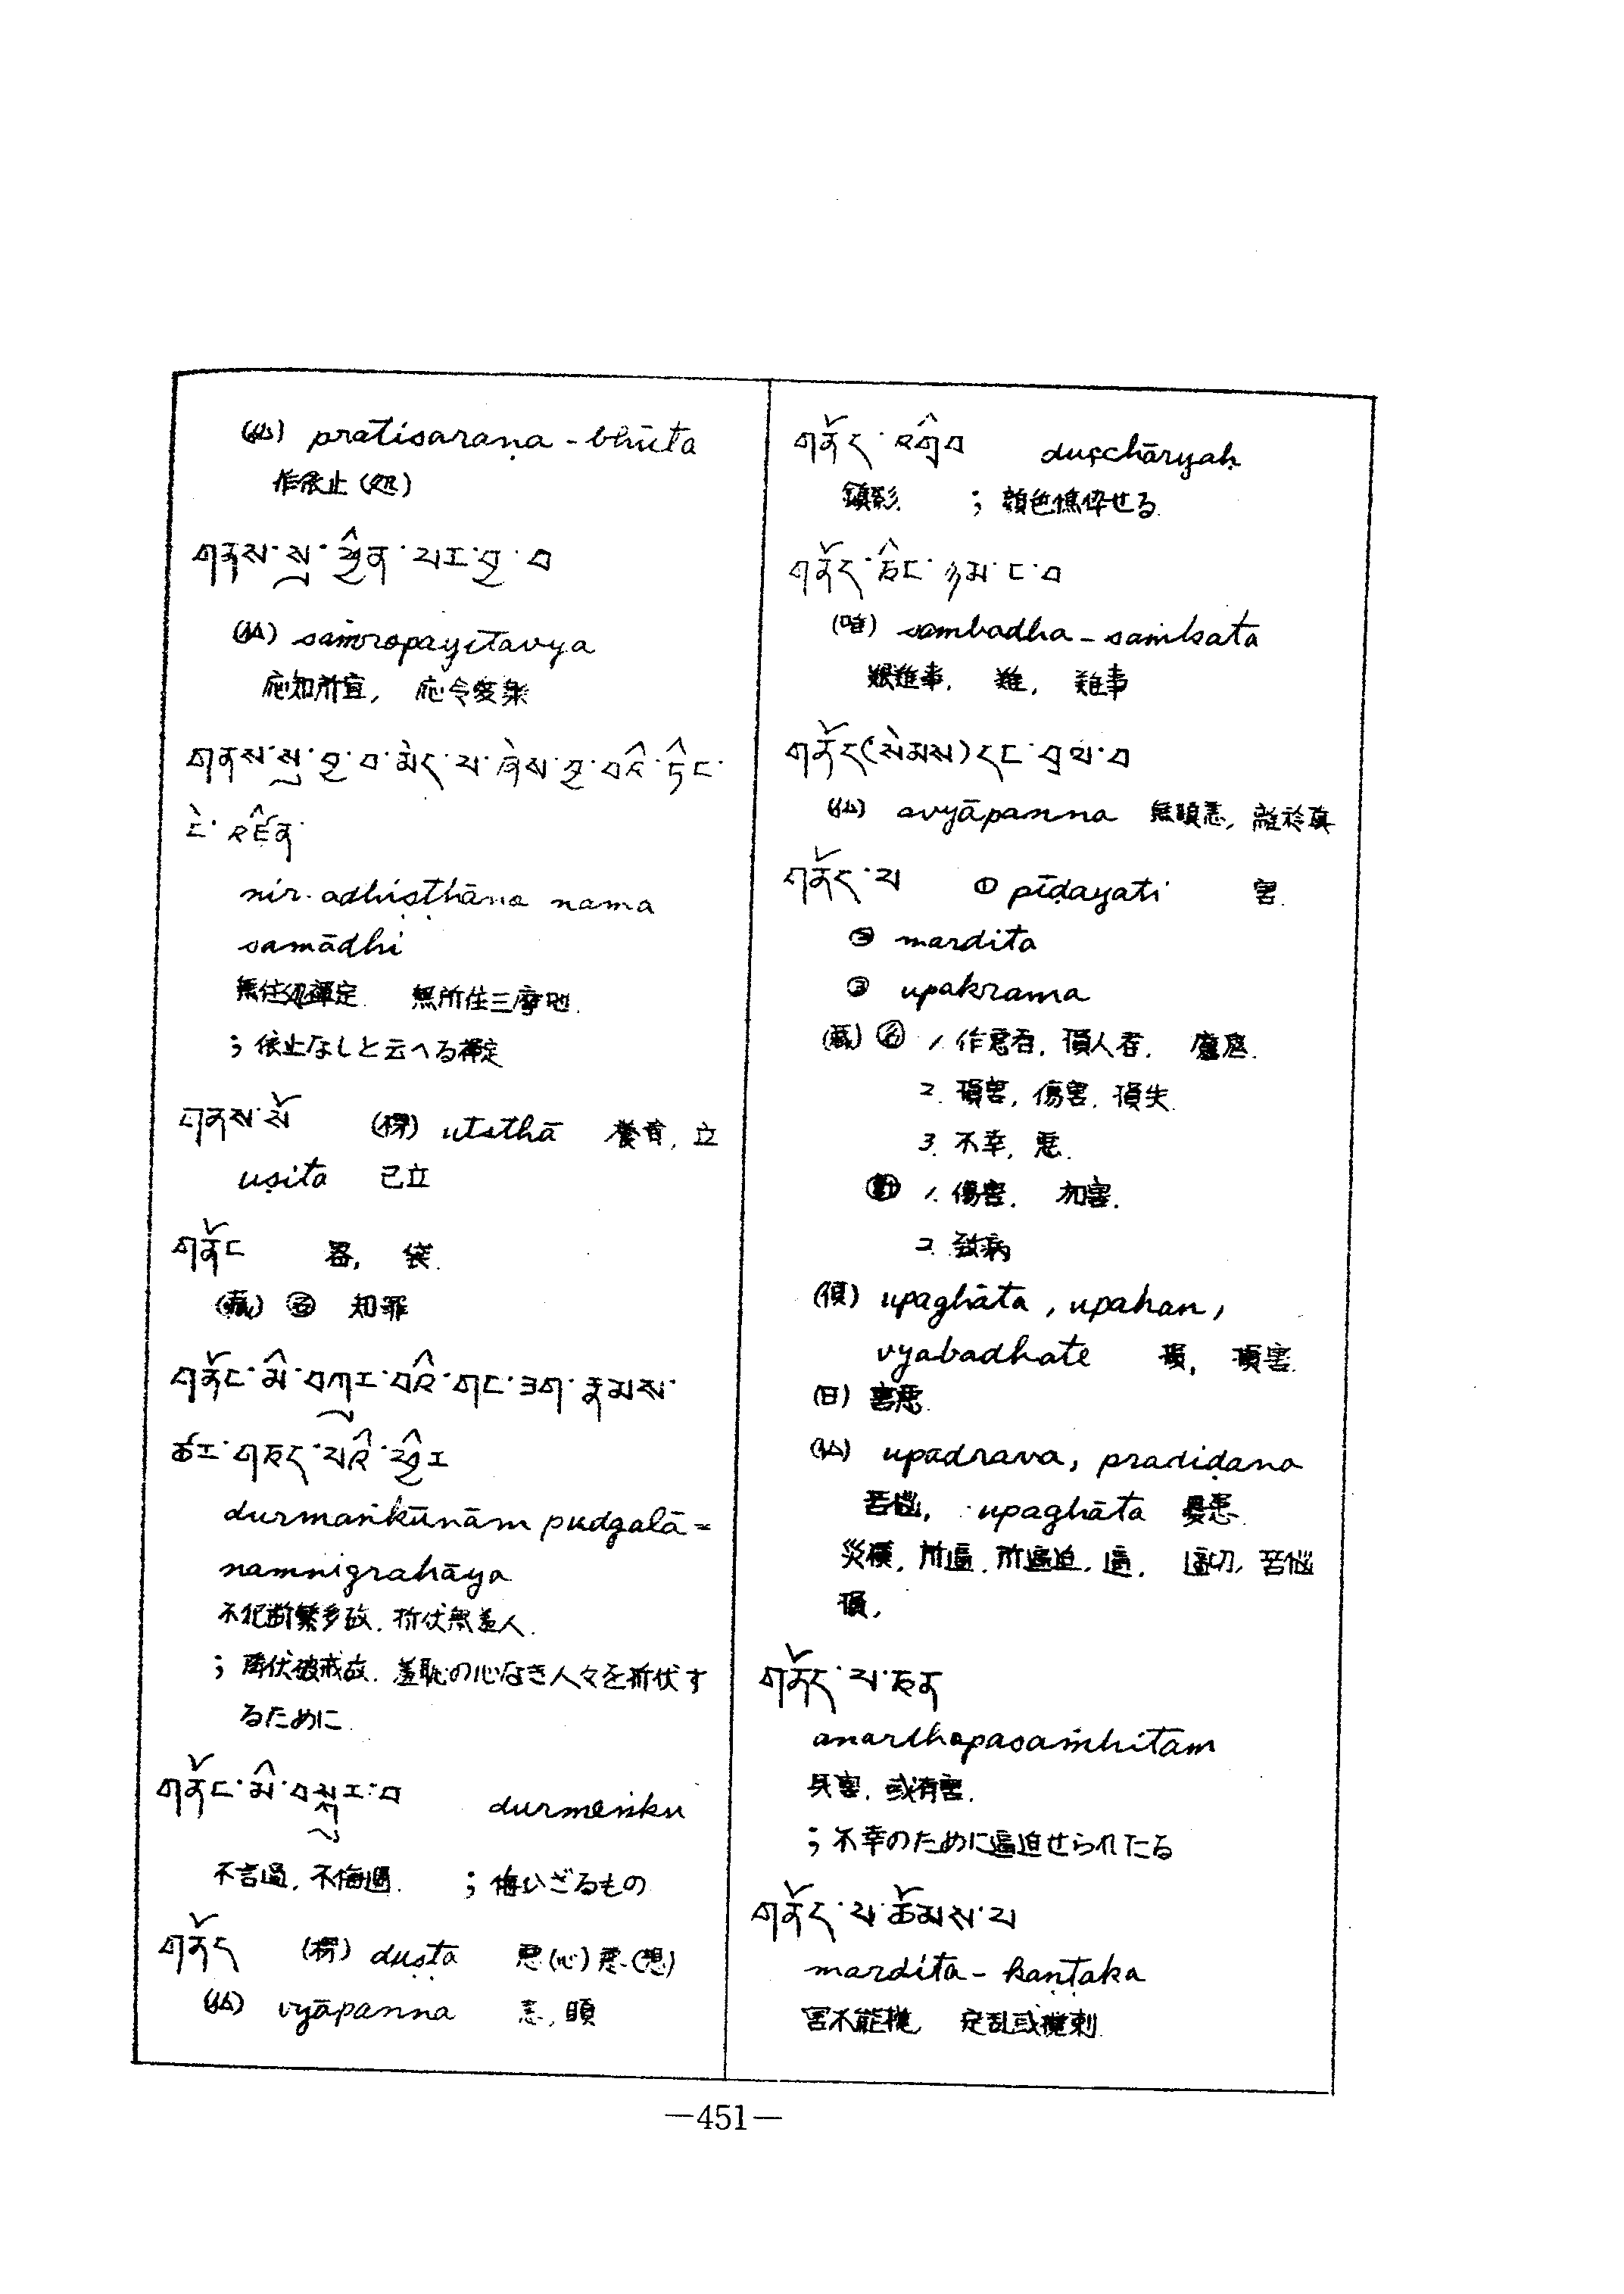 pratisaraṇa - bhūta
作依止 (処)
གནས་སུ་ཕྱིན་པར་བྱ་བ
saṁropayitavya
応知所宜, 応令愛楽
གནས་སུ་བྱ་བ་མེད་པ་ཞེས་བྱ་བའི་ཏིང་
ངེ་འཛིན་
nir-adhiṣṭhāna nama
samādhi
無住処禅定. 無所住三摩地.
; 依止なしと云へる禅定
གནས་སོ (楞) utsthā 養育, 立
uṣita 已立
གནོང 器, 袋.
(蔵) 名 知罪
གནོང་མི་བཀུར་བའི་གང་ཟག་རྣམས་
ཚར་གཅད་པའི་ཕྱིར
durmaṅkūnām pudgalā=
namnigrahāya
不犯断繁多故. 折伏無羞人.
; 降伏破戒故. 羞恥の心なき人々を折伏す
るために.
གནོང་མི་བསྐུར་བ durmeṅku
不言過, 不悔過. ; 悔いざるもの
གནོད (楞) duṣṭa 悪(心) 悪(想)
vyāpanna 恚, 瞋
གནོད་འགྲིབ duṣchāryaḥ
; 顔色憔悴せる.
གནོད་ཅིང་ཉམ་ང་བ
sambadha - saṁkata
艱難事, 難, 難事
གནོད(སེམས)དང་བྲལ་བ
avyāpanna 無瞋恚, 離於真
གནོད་པ ① pīḍayati 害.
② mardita
③ upakrama
(蔵) 名 1. 作害者, 損人者.
2. 損害, 傷害, 損失.
3. 不幸, 悪.
動 1. 傷害. 加害.
2. 致病
upaghāta, upahan,
vyabadhate 損, 損害.
(日) 害悪.
upadrava, pradiḍana
苦悩, upaghāta 憂患.
災横, 所逼, 所逼迫, 逼. 逼切, 苦悩
損,
གནོད་པ་ཅན
anarthopasaṁhitam
具害, 或有害.
; 不幸のために逼迫せられたる
གནོད་པ་ཚོམས་པ
mardita - kaṇṭaka
害不能擾
—451—